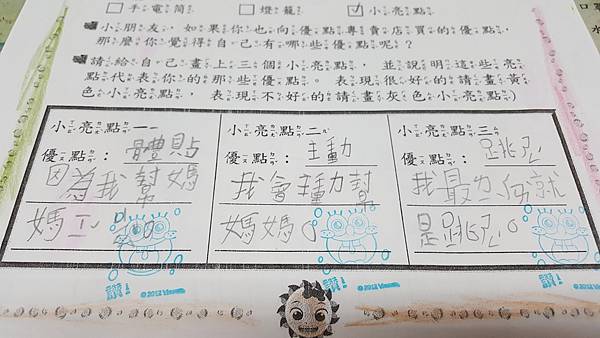 □手電筒 □燈籠 ☑小亮點
小朋友，如果你也向優點專賣店買的優點，
那麼你覺得自己有哪些優點呢？
請給自己畫上三個小亮點，並說明這些亮
點代表你的那些優點。表現很好的請畫黃
色小亮點，表現不好的請畫灰色小亮點。)
小亮點一
優點：體貼
因為我幫媽
媽ㄒㄧ
小亮點二
優點：主動
我會主動幫
媽媽。
小亮點三
優點：跳ㄨˇ
我最ㄌ
是跳ㄨˇ。
讚!
©2012 Viacom
讚!
©2012 Viacom
讚!
©2012 Viacom